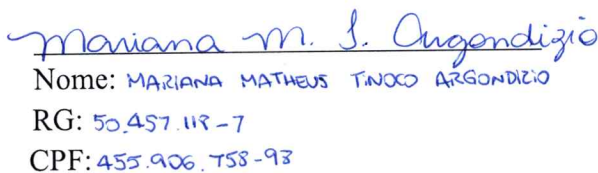 Mariana M. S. Argondizio
Nome: MARIANA MATHEUS TINOCO ARGONDIZIO
RG: 50.457.118-7
CPF: 455.906.758-93